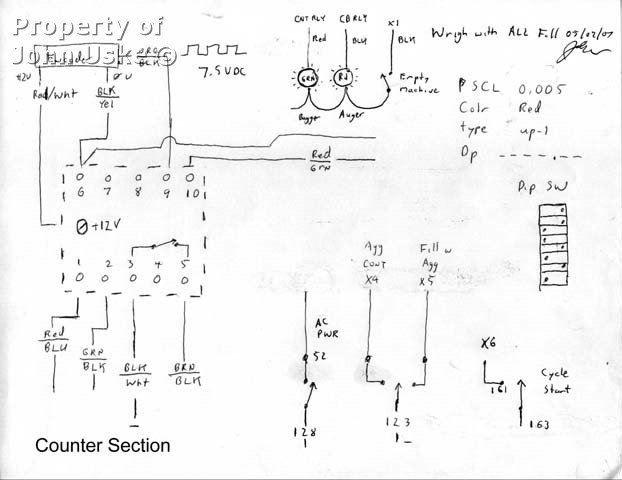 Property of
CNT RLY
CB RLY
X1
Red
BLK
BLK
Wrigh with ALL Fill 03/02/07
+12V
0 V
ORG
BLK
7.5 VDC
Red/Wht
BLK
Yel
GRN
Rd
Empty
Machine
Auger
PSCL 0.005
Colr Red
type up-1
Dp - - - - - . - -
Red
Grn
Dip SW
6 7 8 9 10
+12V
1 2 3 4 5
Agg
CONT
X4
Fill w
Agg
X5
Red
BLU
GRN
BLK
BLK
Wht
BRN
BLK
AC
PWR
52
128
123
X6
161
Cycle
Start
163
Counter Section